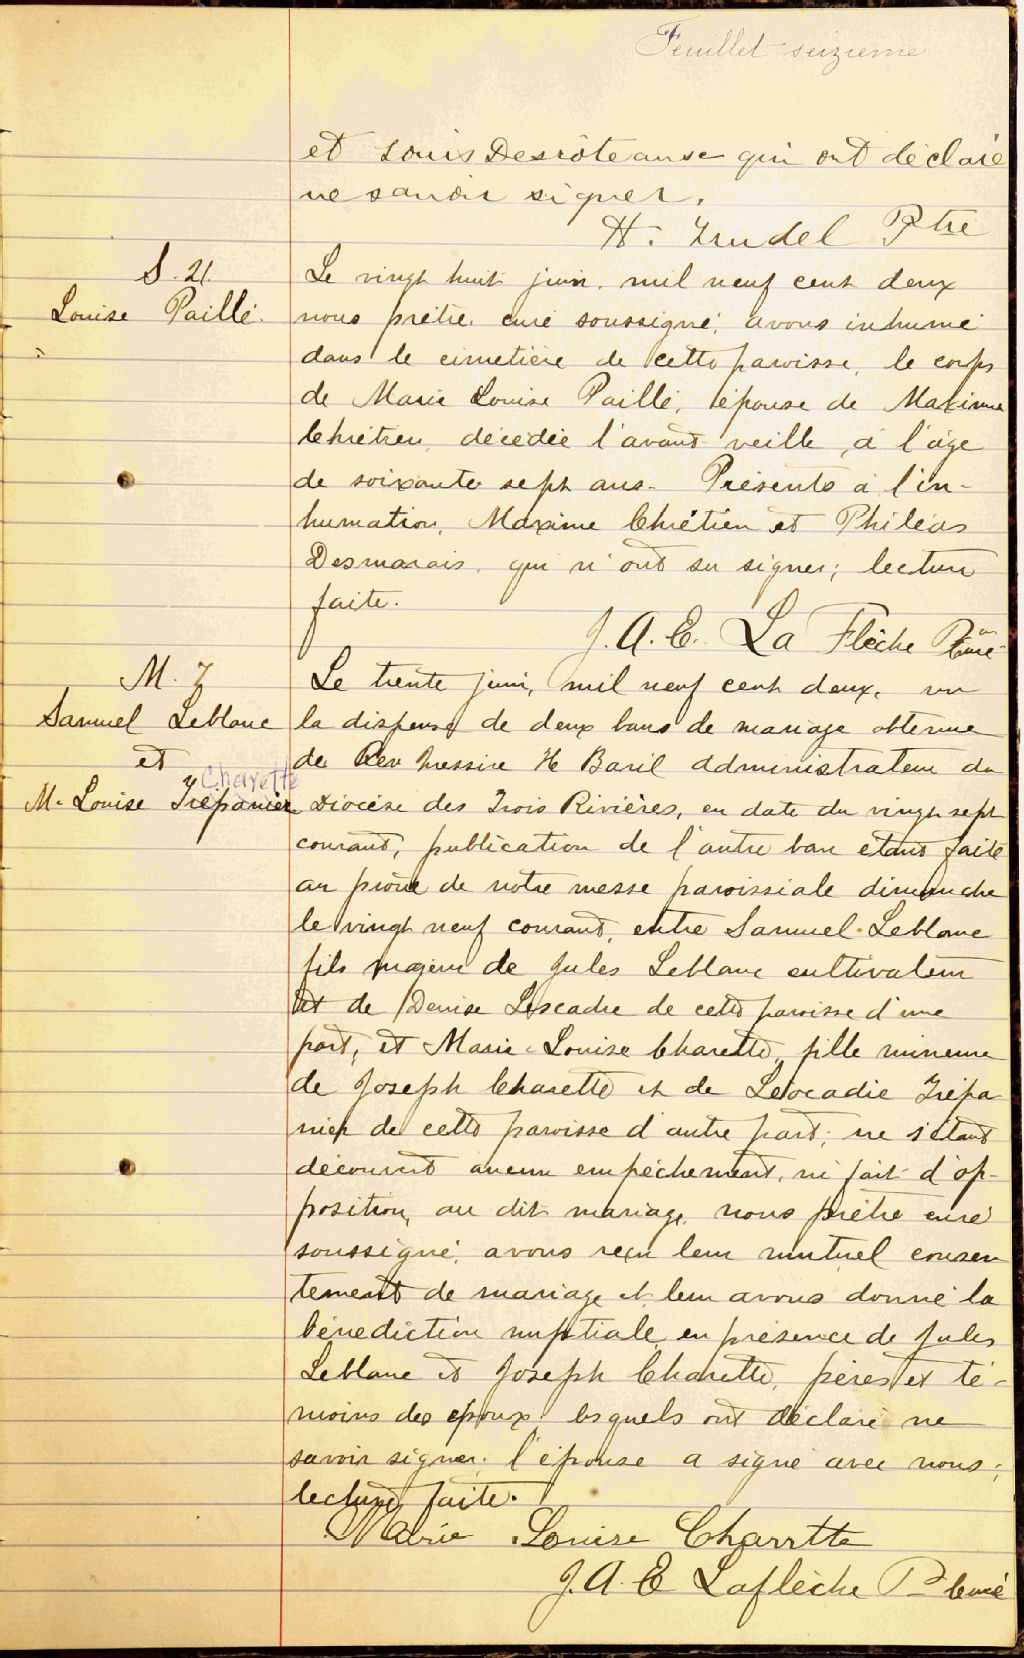 Feuillet seizième
et Louis Desrôteause qui ont déclaré
ne savoir signer.
H. Trudel Ptre
S. 21.
Louise Paillé.
Le vingt huit juin, mil neuf cent deux
nous prêtre, curé soussigné, avons inhumé
dans le cimetière de cette paroisse, le corps
de Marie Louise Paillé, épouse de Maxime
Chrétien, décédée l'avant-veille, à l'âge
de soixante sept ans. Présents à l'in-
humation, Maxime Chrétien et Philéas
Desmarais, qui n'ont su signer; lecture
faite.
J. A. E. La Flèche Ptre Curé
M. 7
Samuel Leblanc
et
Charette
M. Louise Trépanier
Le trente juin, mil neuf cent deux, vu
la dispense de deux bans de mariage obtenue
de Rev Messire H Baril administrateur du
Diocèse des Trois Rivières, en date du vingt sept
courant, publication de l'autre ban étant faite
au prône de notre messe paroissiale dimanche
le vingt neuf courant, entre Samuel Leblanc
fils majeur de Jules Leblanc cultivateur
et de Denise Lescadre de cette paroisse d'une
part, et Marie-Louise Charette, fille mineure
de Joseph Charette et de Léocadie Trépa
nier de cette paroisse d'autre part; ne s'étant
découvert aucun empêchement, ni fait d'op-
position, au dit mariage, nous prêtre curé
soussigné, avons reçu leur mutuel consen
tement de mariage et leur avons donné la
bénédiction nuptiale en présence de Jules
Leblanc et Joseph Charette, pères et té-
moins des époux, lesquels ont déclaré ne
savoir signer; l'épouse a signé avec nous;
lecture faite.
Marie Louise Charrtte
J. A. E Laflèche Ptre Curé